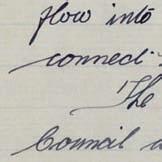 flow into
connect
The
Council